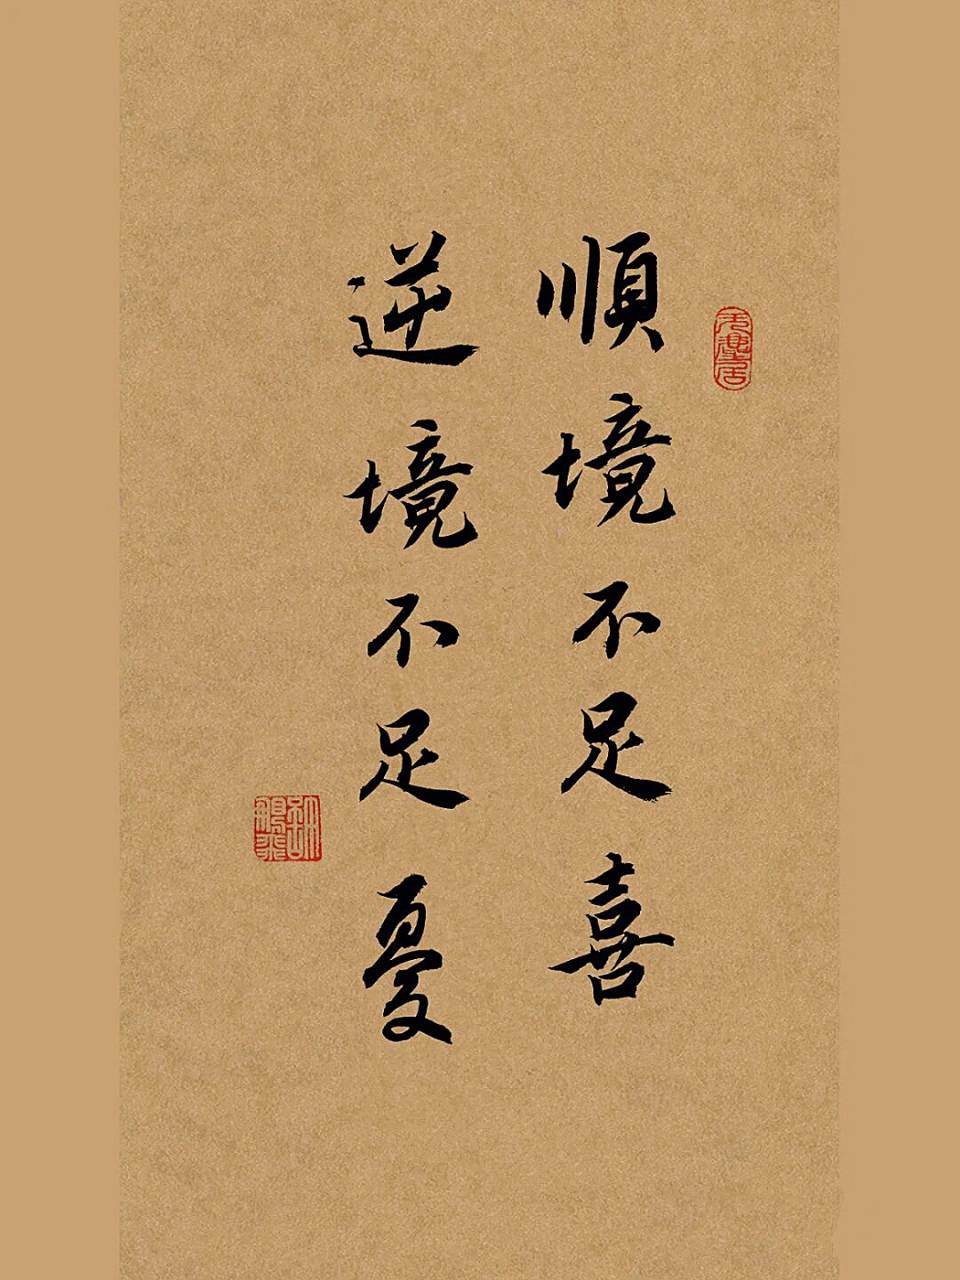 順境不足喜
逆境不足憂